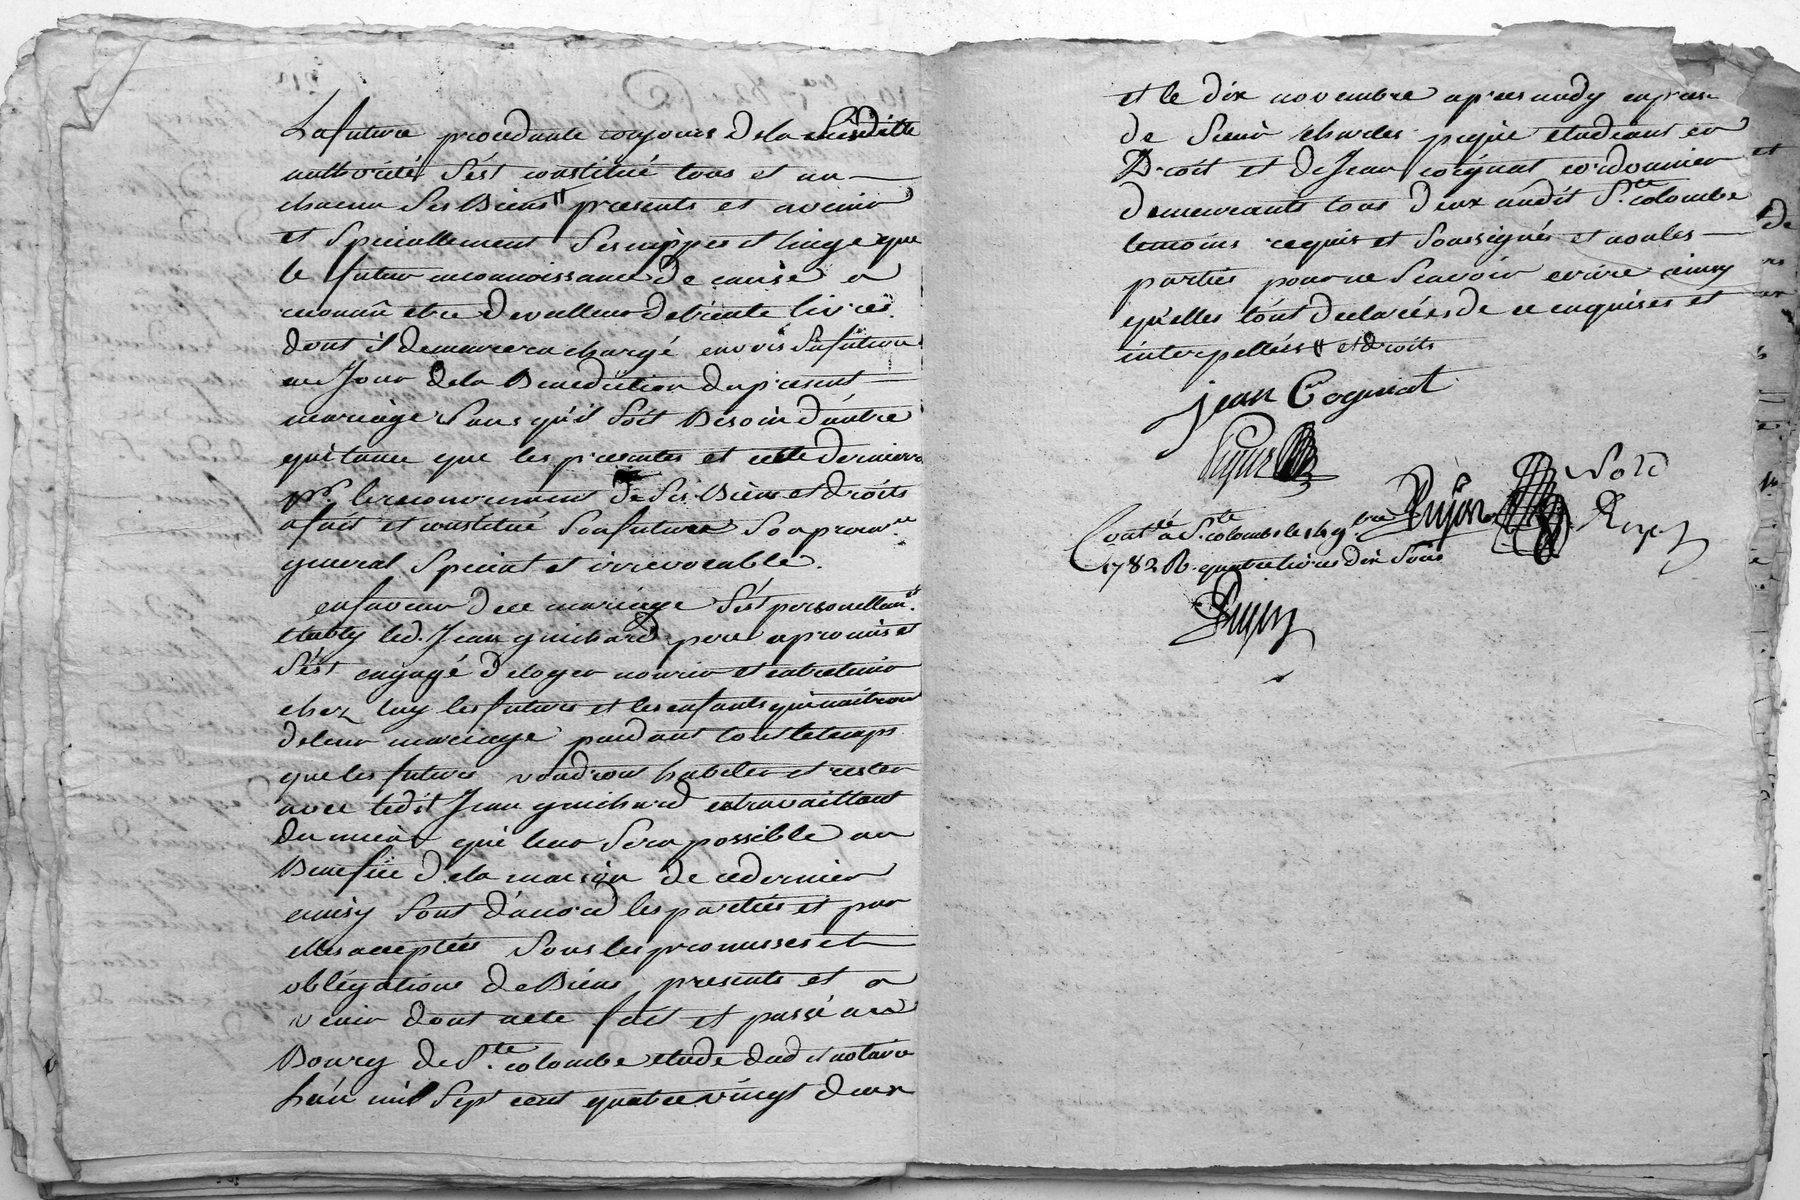 La future procedante toujours de la susditte
authorité s'est constitué tous et un
chacun ses Biens # presents et avenir
et specialement ses nippes et linge que
le futur en connoissance de cause a
reconnu etre de valleur de trente livres
dont il demeurera chargé envers sa future
au Jour de la Benediction du present
mariage sans qu'il soit Besoin d'autre
quitance que les presentes et cette derniere
pr. le recouvrement de ses Biens et droits
a fait et constitué son futur son procur.
general special et irrevocable.
en faveur de ce mariage s'est personellem.t
etably led. Jean guichard pere a promis et
s'est engagé de loger nourir et entretenir
chez luy les futurs et les enfants qui naitront
de leur mariage pendant tout le temps
que les futurs voudront habiter et rester
avec ledit Jean guichard en travaillant
du mieux qui leur sera possible au
Benefice de la maison de ce dernier
ainsy sont d'acord les parties et par
elles acceptées sous les promesses et
obligations de Biens presents et a
venir dont acte fait et passé au
Bourg de S.te colombe etude dud notaire
l'an mil sept cent quatre vingt deux
et le dix novembre apres midy en presen
de sieur charles pujin etudiant en
Droit et de Jean cognat cordonnier
demeurants tous deux audit S.te colombe
temoins requis et soussignés et non les
parties pour ne scavoir ecrire ainsy
qu'elles l'ont declarées de ce enquises et
interpellées # et droits
jean Cognat
Contlé a S.te colombe le 9.bre
1782 R. quatre livres dix sous